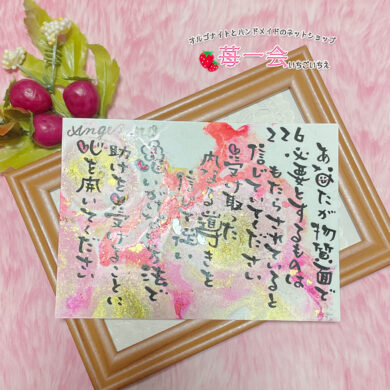 オルゴナイトとハンドメイドのネットショップ
苺一会
いちごいちえ
あなたが物質面で
226
必要とするものは
もたらされていると
信じていてください
受け取った
内なる導きを
信じ従い
方法で
助けを受けることに
心を開いてください